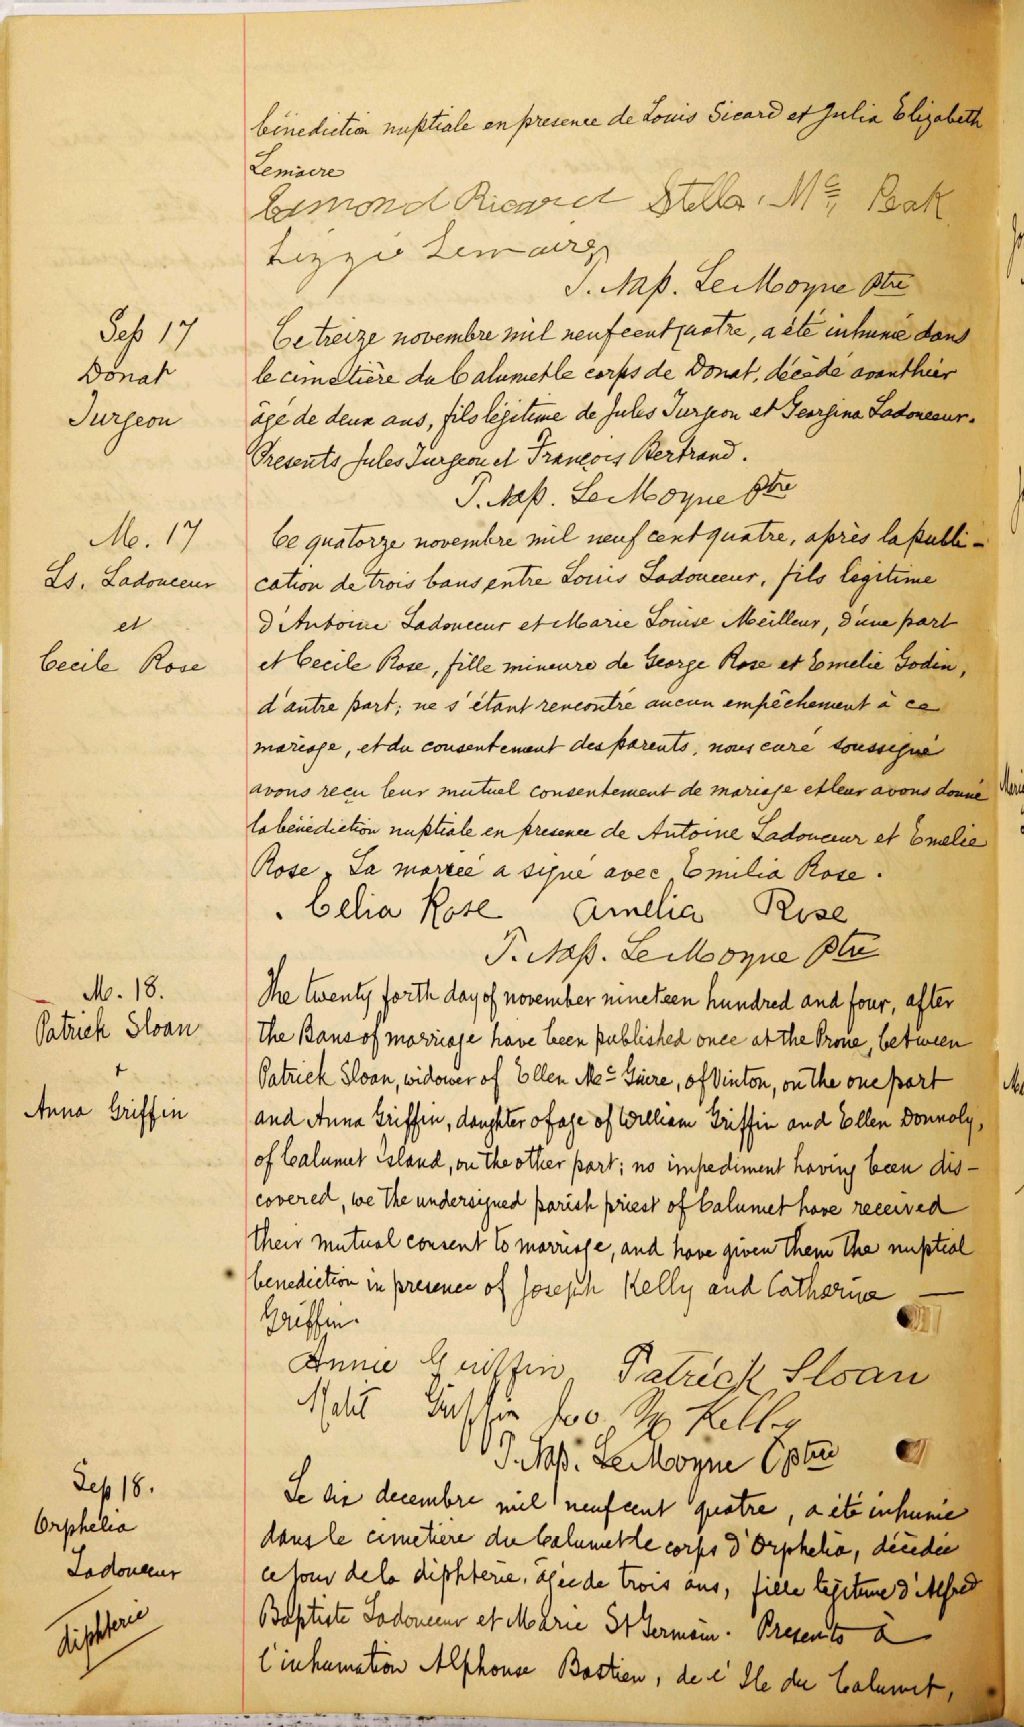 bénediction nuptiale en presence de Louis Sicard et Julia Elizabeth
Lemaire
Edmond Ricard Stella. Mc Peak
Lizzie Lemaire
T. Nap. LeMoyne Ptre
Sep 17
Donat
Turgeon
Ce treize novembre mil neuf cent quatre, a été inhumé dans
le cimetière du Calumet le corps de Donat, décédé avanthier
âgé de deux ans, fils légitime de Jules Turgeon et Georgina Ladouceur.
Presents Jules Turgeon et François Bertrand.
T. Nap. LeMoyne Ptre
M. 17
Ls. Ladouceur
et
Cecile Rose
Ce quatorze novembre mil neuf cent quatre, après la publi-
cation de trois bans entre Louis Ladouceur, fils légitime
d'Antoine Ladouceur et Marie Louise Meilleur, d'une part
et Cecile Rose, fille mineure de George Rose et Emelie Godin,
d'autre part; ne s'étant rencontré aucun empêchement à ce
mariage, et du consentement des parents, nous curé soussigné
avons reçu leur mutuel consentement de mariage et leur avons donné
la bénédiction nuptiale en presence de Antoine Ladouceur et Emelie
Rose. La mariée a signé avec Emilia Rose.
Celia Rose Amelia Rose
T. Nap. LeMoyne Ptre
M. 18.
Patrick Sloan
+
Anna Griffin
The twenty forth day of november nineteen hundred and four, after
the Bans of marriage have been published once at the Prone, between
Patrick Sloan, widower of Ellen Mc Guire, of Vinton, on the one part
and Anna Griffin, daughter of age of William Griffin and Ellen Donnoly,
of Calumet Island, on the other part; no impediment having been dis-
covered, we the undersigned parish priest of Calumet have received
their mutual consent to marriage, and have given them the nuptial
benediction in presence of Joseph Kelly and Catherine —
Griffin.
Annie Griffin Patrick Sloan
Griffin Kelly
T. Nap. LeMoyne Ptre
Sep 18.
Orphelia
Ladouceur
diphterie
Le six decembre mil neuf cent quatre, a été inhumée
dans le cimetière du Calumet le corps d'Orphelia, décédée
ce jour de la diphterie, âgée de trois ans, fille légitime d'Alfred
Baptiste Ladouceur et Marie St Germain. Presents à
l'inhumation Alphonse Bastien, de l'Ile du Calumet,